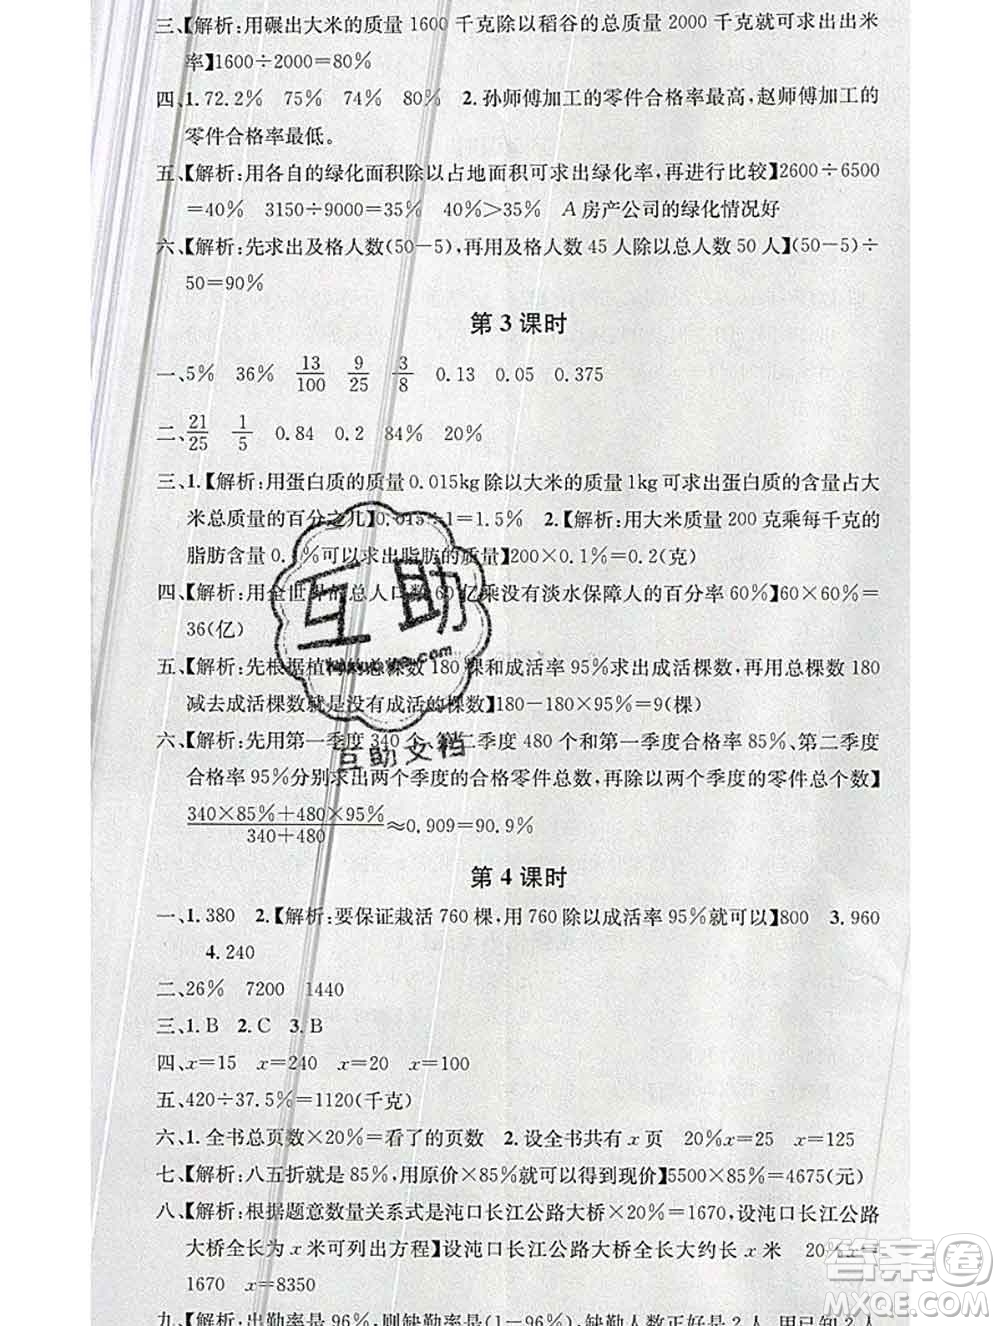 三、【解析:用碾出大米的质量 1600 千克除以稻谷的总质量 2000 千克就可求出出米
率】1600÷2000=80%
四、1.72.2% 75% 74% 80% 2.孙师傅加工的零件合格率最高,赵师傅加工的
零件合格率最低。
五、【解析:用各自的绿化面积除以占地面积可求出绿化率,再进行比较】2600÷6500
=40% 3150÷9000=35% 40%>35% A 房产公司的绿化情况好
六、【解析:先求出及格人数(50-5),再用及格人数 45 人除以总人数 50 人】(50-5)÷
50=90%
第 3 课时
一、5% 36% 13/100 9/25 3/8 0.13 0.05 0.375
二、21/25 1/5 0.84 0.2 84% 20%
三、1.【解析:用蛋白质的质量 0.015kg除以大米的质量 1kg可求出蛋白质的含量占大
米总质量的百分之几】0.015÷1=1.5% 2.【解析:用大米质量 200 克乘每千克的
脂肪含量 0.1%可以求出脂肪的质量】200×0.1%=0.2(克)
四、【解析:用全世界的总人口数 60 亿乘没有淡水保障人的百分率 60%】60×60%=
36(亿)
五、【解析:先根据植树的总棵数 180 棵和成活率 95%求出成活棵数,再用总棵数 180
减去成活棵数就是没有成活的棵数】180-180×95%=9(棵)
六、【解析:先用第一季度 340 个、第二季度 480 个和第一季度合格率 85%、第二季度
合格率 95%分别求出两个季度的合格零件总数,再除以两个季度的零件总个数】
340×85%+480×95%/340+480≈0.909=90.9%
第 4 课时
一、1.380 2.【解析:要保证栽活 760 棵,用 760 除以成活率 95%就可以】800 3.960
4.240
二、26% 7200 1440
三、1.B 2.C 3.B
四、x=15 x=240 x=20 x=100
五、420÷37.5%=1120(千克)
六、1.全书总页数×20%=看了的页数 2.设全书共有 x 页 20%x=25 x=125
七、【解析:八五折就是 85%,用原价×85%就可以得到现价】5500×85%=4675(元)
八、【解析:根据题意数量关系式是沌口长江公路大桥×20%=1670,设沌口长江公路
大桥全长为 x 米可列出方程】设沌口长江公路大桥全长大约长 x 米 20%x=
1670 x=8350
九、【解析:出勤率是 96%,则缺勤率是(1-96%),缺勤人数正好是 2 人,用已知 2 人
互助
互助文档
答案圈
MXQE.COM